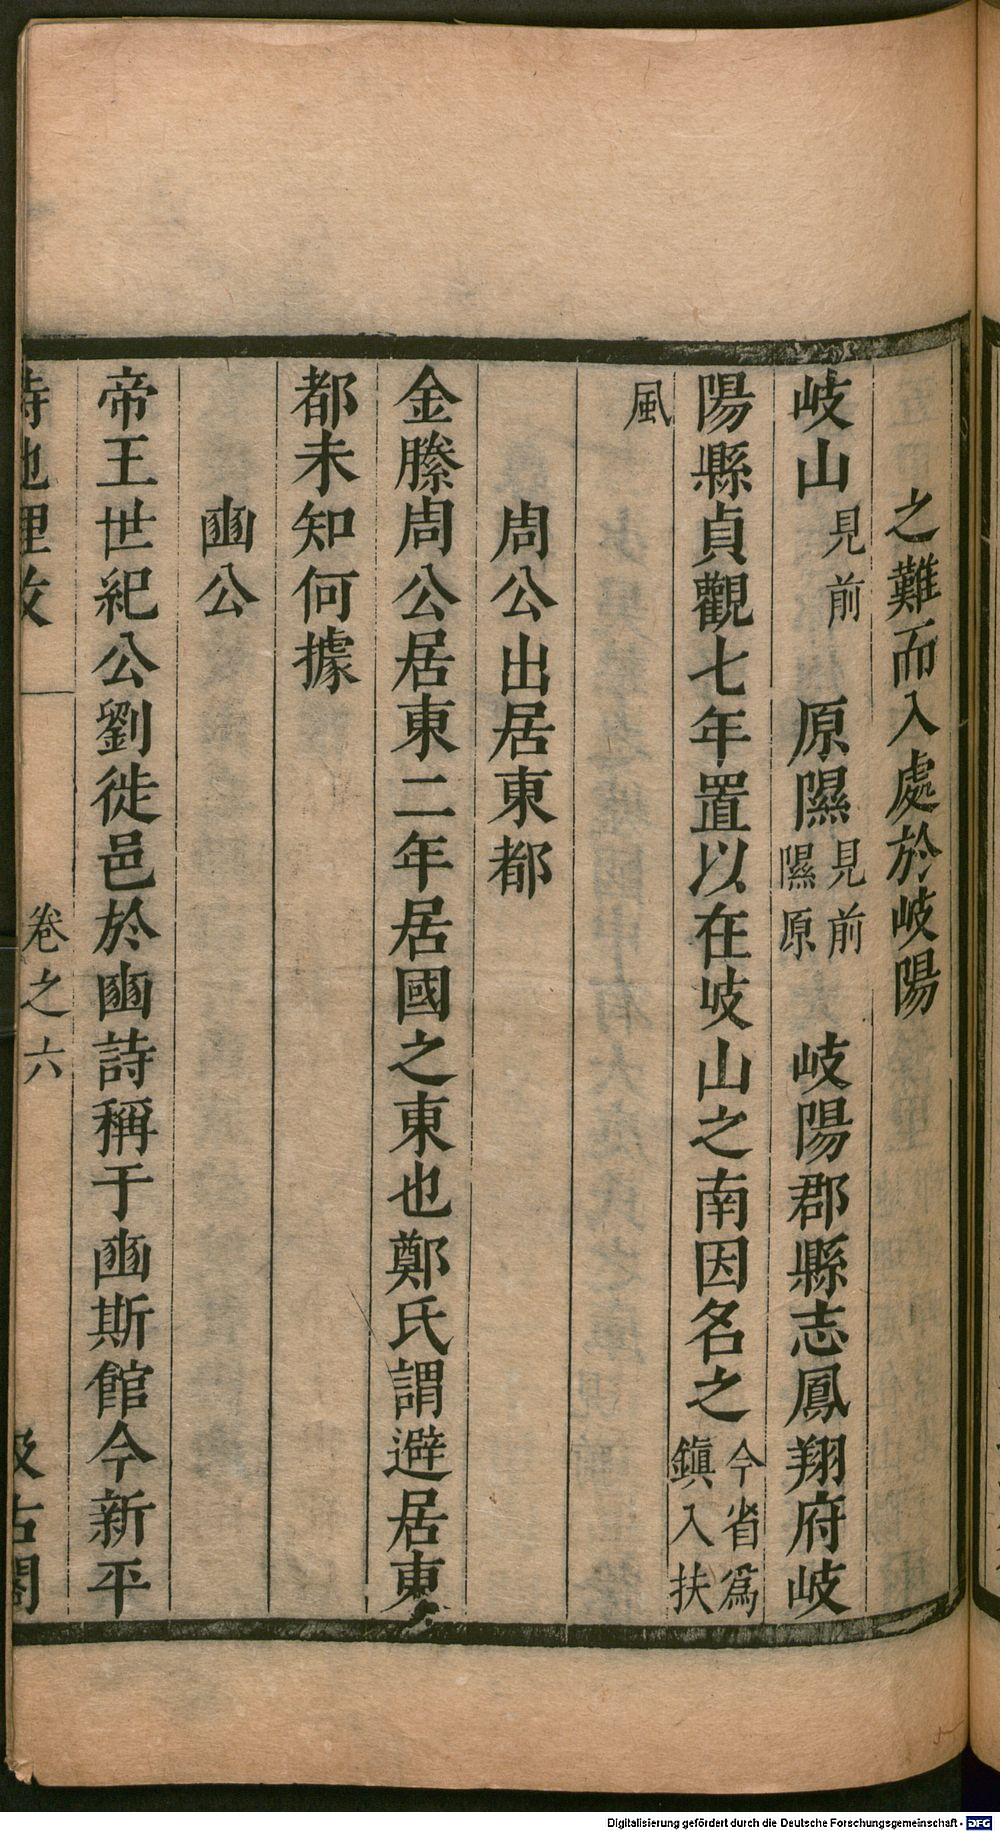 之難而入處於岐陽
岐山見前　原隰見前隰原　岐陽郡縣志鳳翔府岐
陽縣貞觀七年置以在岐山之南因名之今省爲鎮入扶
風
周公出居東都
金縢周公居東二年居國之東也鄭氏謂避居東
都未知何據
豳公
帝王世紀公劉徙邑於豳詩稱于豳斯館今新平
詩地理攷　卷之六　汲古閣
Digitalisierung gefördert durch die Deutsche Forschungsgemeinschaft - DFG